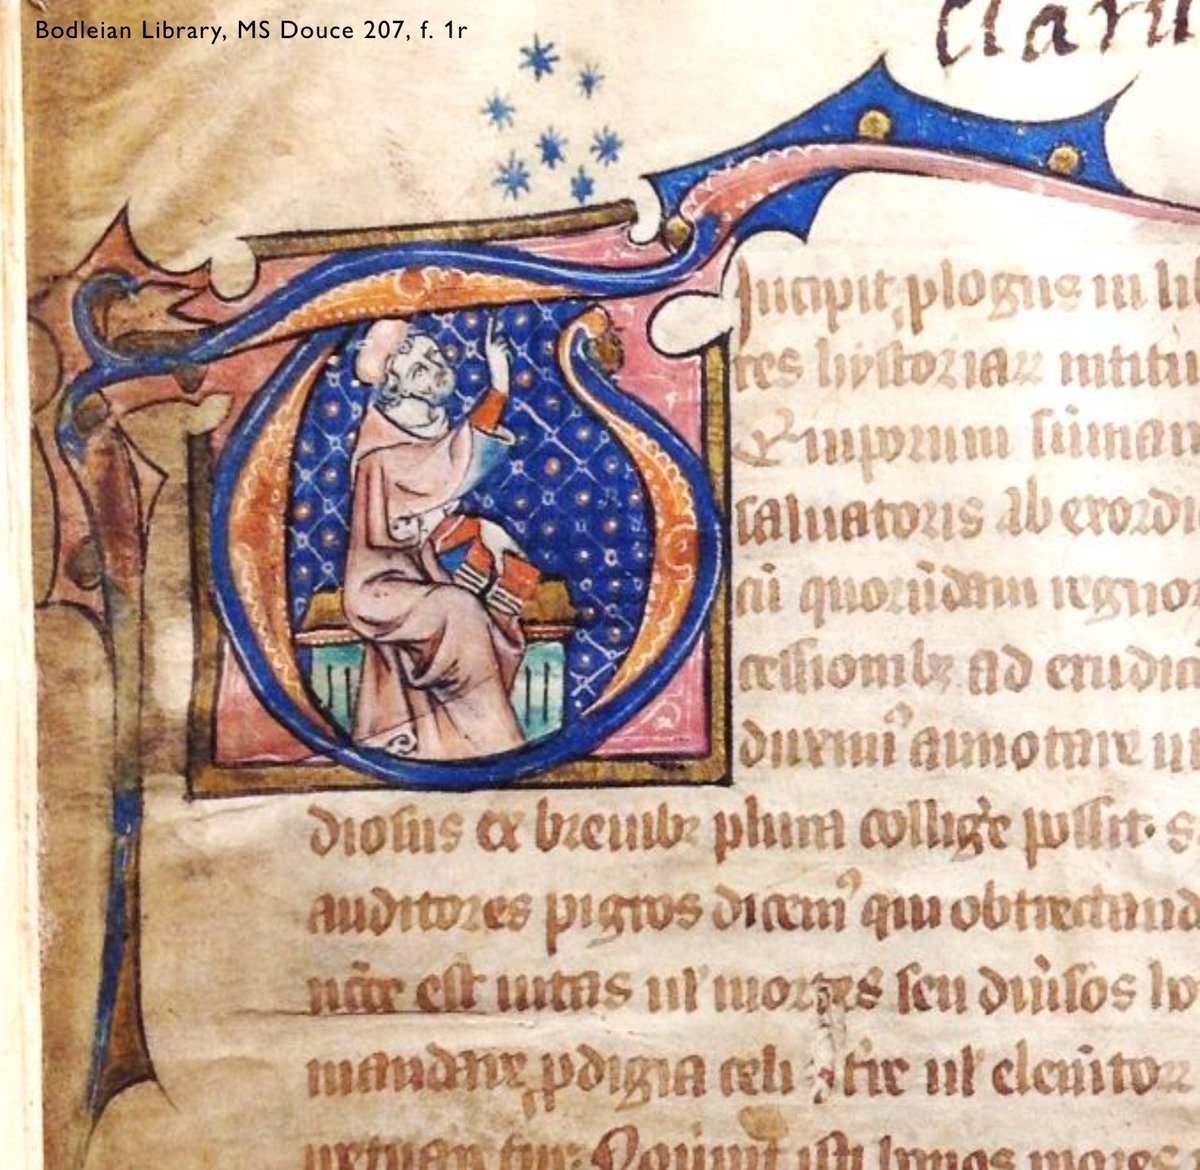 Bodleian Library, MS Douce 207, f. 1r
claru
Incipit plogus in lib
res hystoriaꝝ intitu
Temporum sūmam
saluatoris ab exordi
cū quorūdam regno
cessionibꝫ ad erudici
duximꝰ annotare ut
diosus ex breuibꝫ plura collig̾e possit. s
auditores pigros dicemꝰ qui obtrectand
nc̄te est uitas ul' mores seu diūsos
mandare ꝓdigia celi ⁊ t're ul' elem̄toꝝ